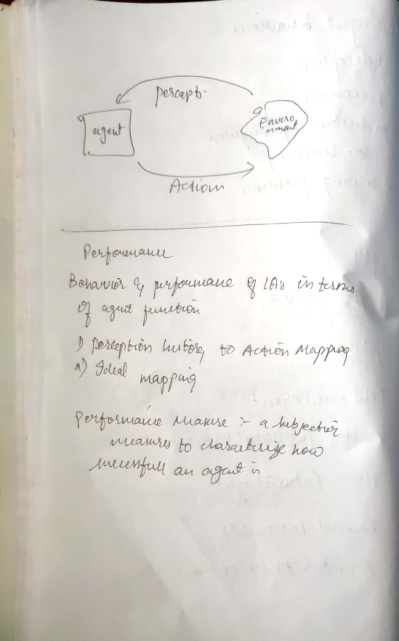 percepts.
agent
Enviro
nment
Action
Performance
Behavior & performance of IA's in terms
of agent function
1) perception history to Action Mapping
2) Ideal mapping
performance measure :- a subjective
measures to characterize how
successfull an agent is